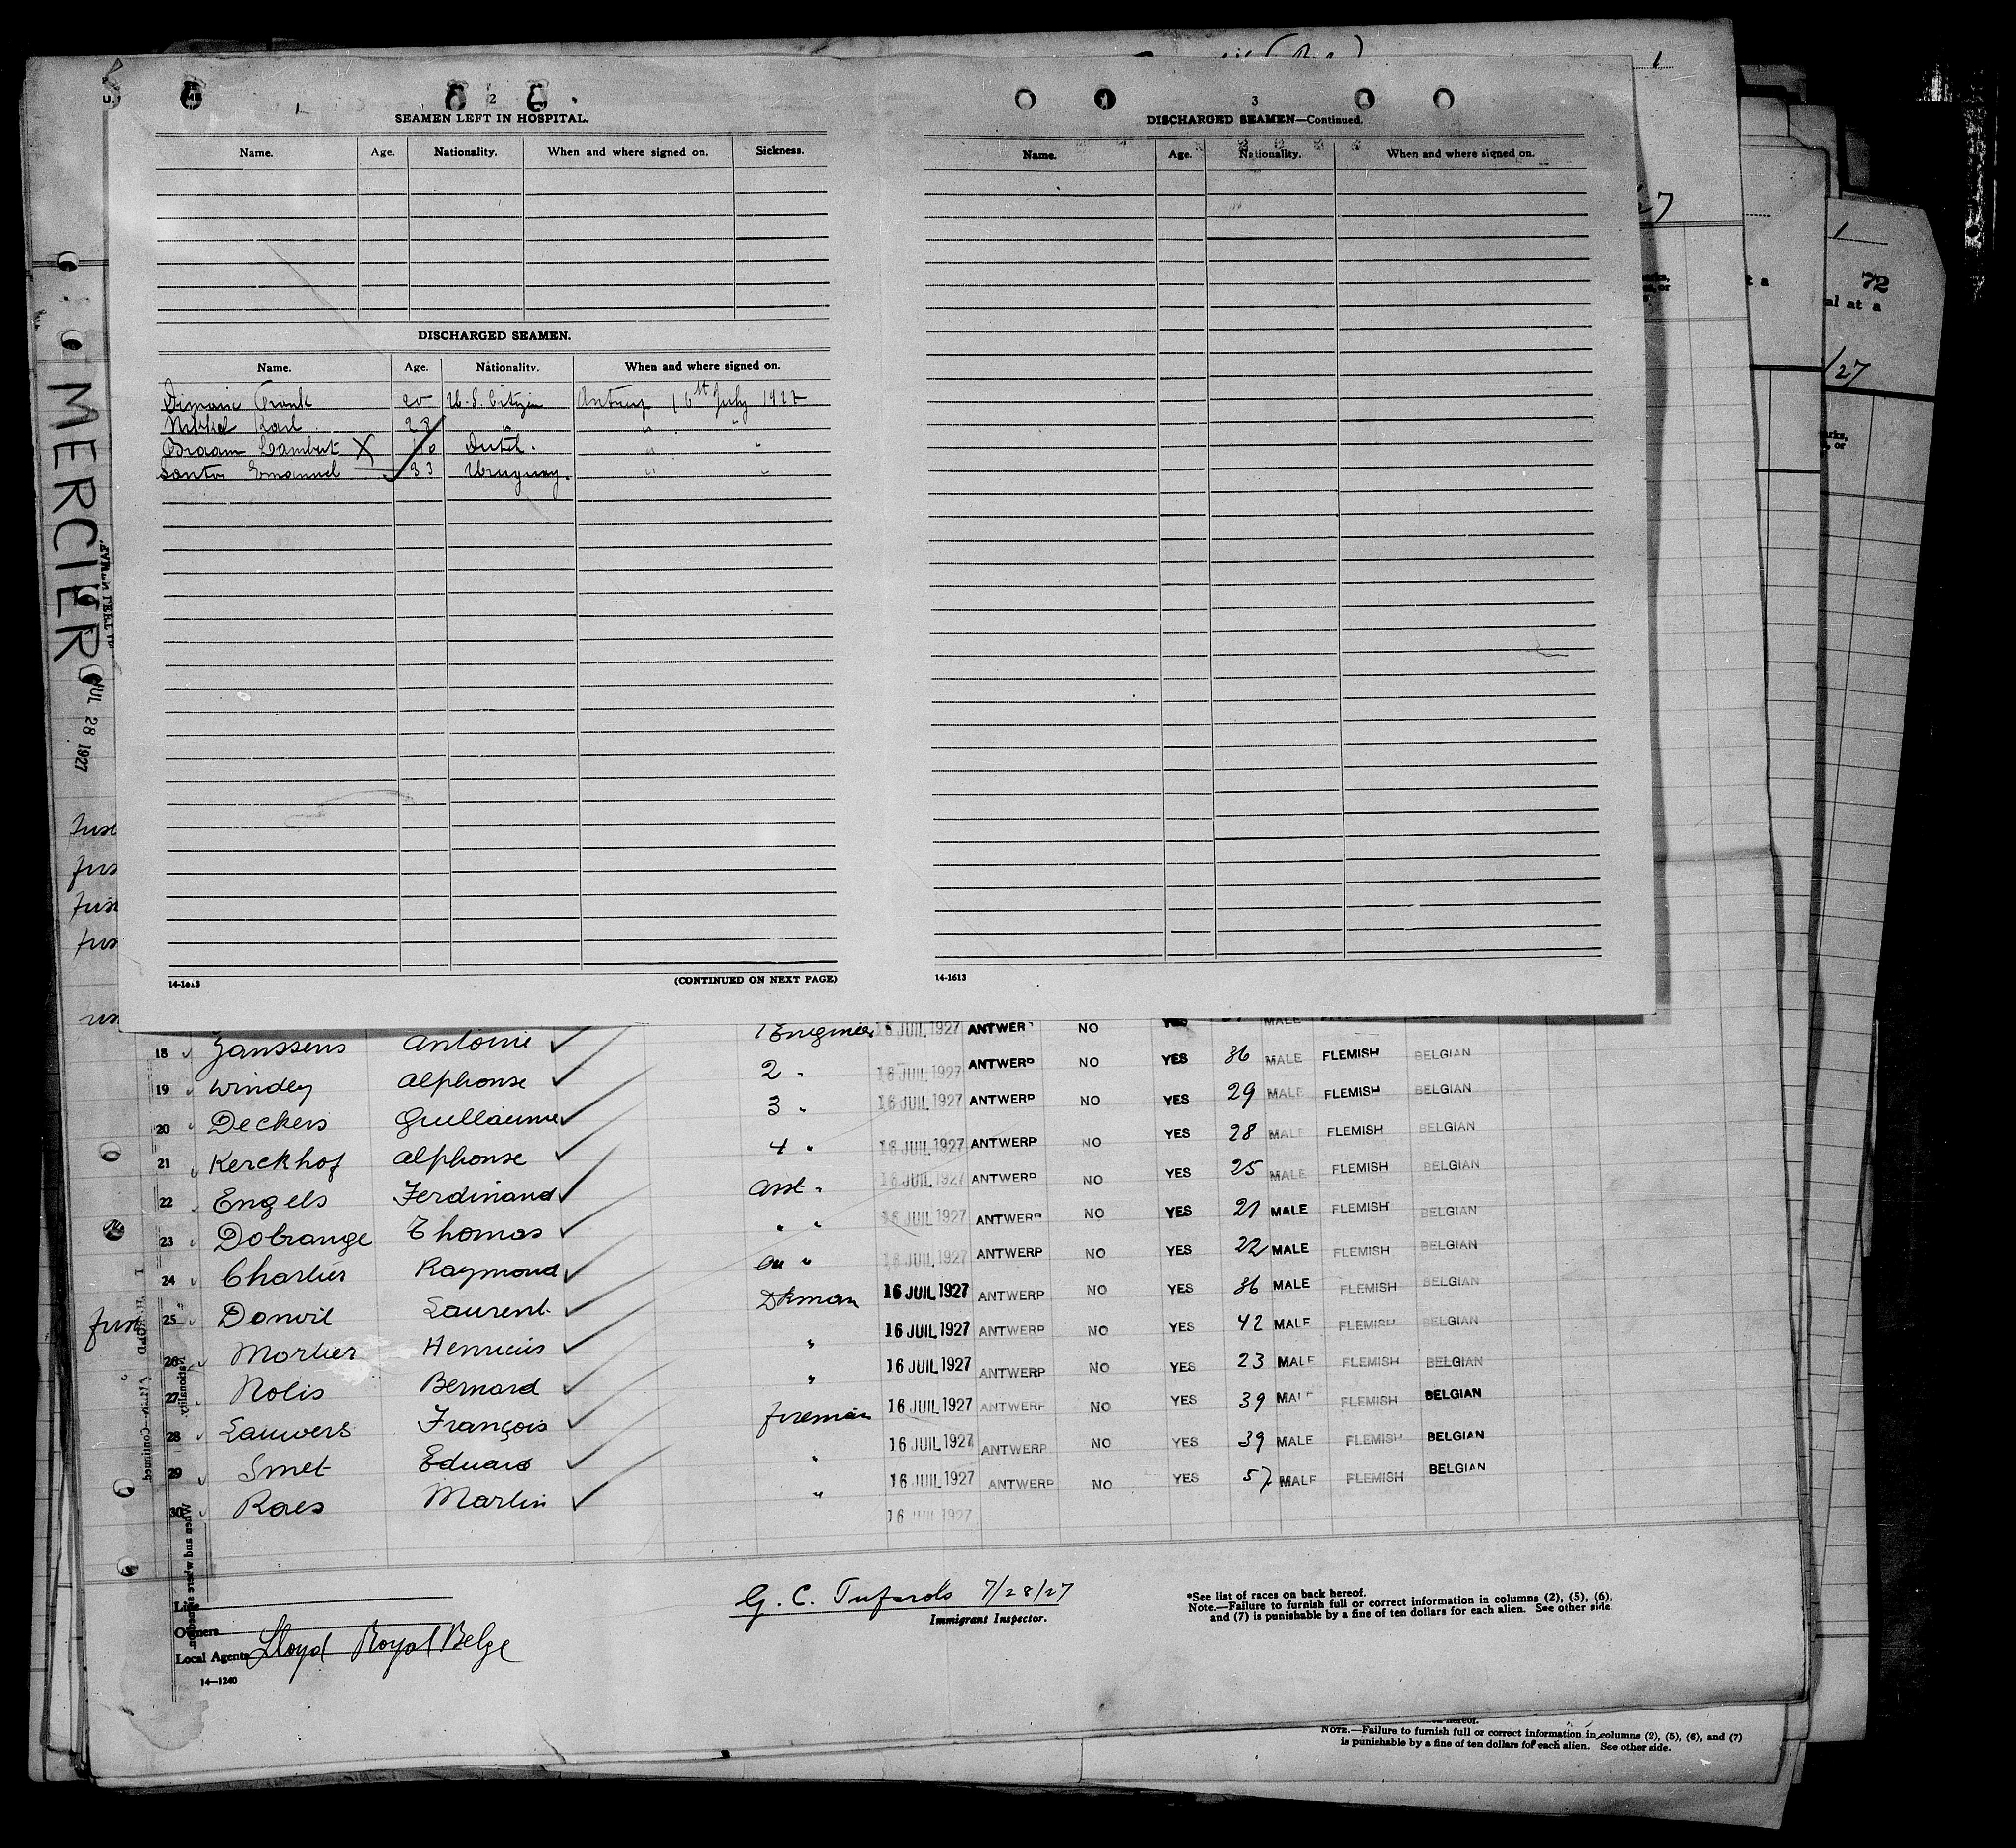 2
SEAMEN LEFT IN HOSPITAL.
Name. Age. Nationality. When and where signed on. Sickness.
DISCHARGED SEAMEN.
Name. Age. Nationality. When and where signed on.
Frank 20 U.S. Citizen Antwerp 16th July 1927
Karl 28 " " "
Braam Lambert X Dutch. " "
Santos Emanuel 33 Uruguay. " "
14-1613 (CONTINUED ON NEXT PAGE)
3
DISCHARGED SEAMEN—Continued.
Name. Age. Nationality. When and where signed on.
14-1613
MERCIER
JUL 28 1927
72
al at a
/27
18 Janssens Antoine 1 Engineer 16 JUIL 1927 ANTWERP NO YES MALE
19 Windey Alphonse 2 " 16 JUIL 1927 ANTWERP NO YES 36 MALE FLEMISH BELGIAN
20 Deckers Guillaume 3 " 16 JUIL 1927 ANTWERP NO YES 29 MALE FLEMISH BELGIAN
21 Kerckhof Alphonse 4 " 16 JUIL 1927 ANTWERP NO YES 28 MALE FLEMISH BELGIAN
22 Engels Ferdinand Asst " 16 JUIL 1927 ANTWERP NO YES 25 MALE FLEMISH BELGIAN
23 Dobrange Thomas " " 16 JUIL 1927 ANTWERP NO YES 21 MALE FLEMISH BELGIAN
24 Charlier Raymond " 16 JUIL 1927 ANTWERP NO YES 22 MALE FLEMISH BELGIAN
25 Donvil Laurent Dkman 16 JUIL 1927 ANTWERP NO YES 36 MALE FLEMISH BELGIAN
26 Mortier Henricus " 16 JUIL 1927 ANTWERP NO YES 42 MALE FLEMISH BELGIAN
27 Nolis Bernard " 16 JUIL 1927 ANTWERP NO YES 23 MALE FLEMISH BELGIAN
28 Lauwers François fireman 16 JUIL 1927 ANTWERP NO YES 39 MALE FLEMISH BELGIAN
29 Smet Eduard " 16 JUIL 1927 ANTWERP NO YES 39 MALE FLEMISH BELGIAN
30 Raes Martin " 16 JUIL 1927 ANTWERP NO YES 57 MALE FLEMISH BELGIAN
16 JUIL 1927
Line
Owners
Local Agents Lloyd Royal Belge
14—1240
G. C. 7/28/27
Immigrant Inspector.
*See list of races on back hereof.
Note.—Failure to furnish full or correct information in columns (2), (5), (6),
and (7) is punishable by a fine of ten dollars for each alien. See other side
hereof.
NOTE.—Failure to furnish full or correct information in columns (2), (5), (6), and (7)
is punishable by a fine of ten dollars for each alien. See other side.